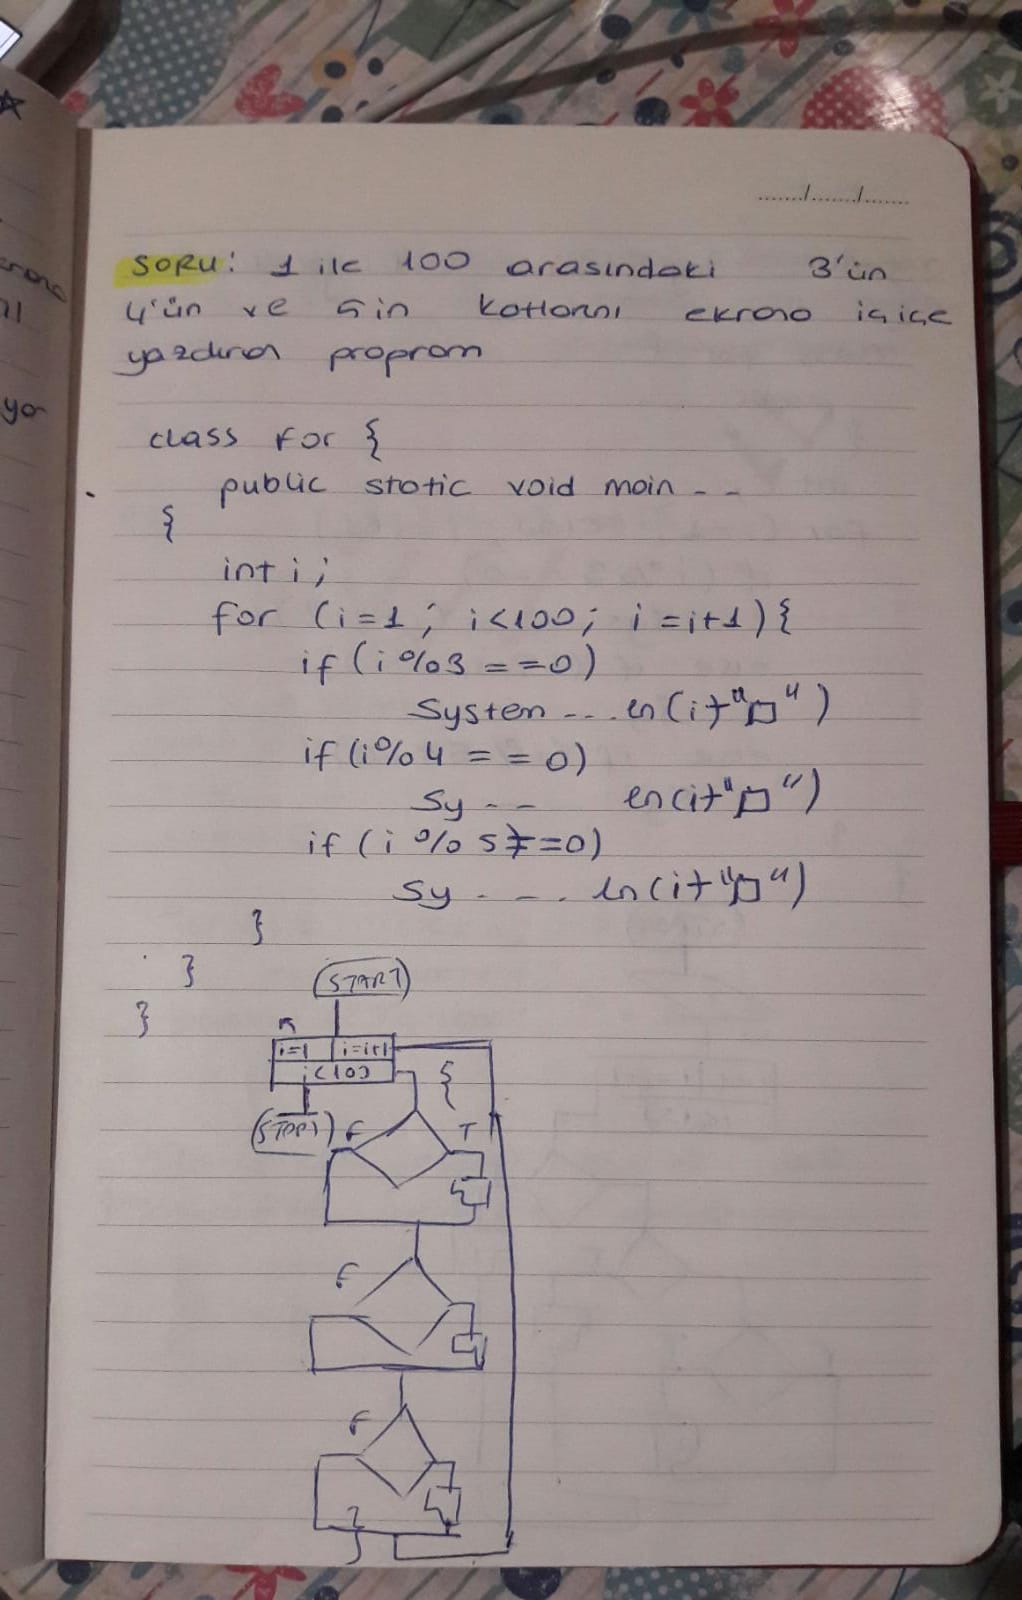 SORU: 1 ile 100 arasındaki 3'ün
4'ün ve 5in katlarını ekrana içiçe
yazdıran program
class for {
public static void main - -
{
int i;
for (i=1; i<100; i=i+1){
if (i%3 ==0)
System --. . ln(i+"□")
if (i%4 == 0)
Sy - - ln(i+"□")
if (i % 5 ==0)
Sy - - . ln(i+"□")
}
}
}
START
i=1 i=i+1
i<100
{
STOP
F T
F
F
}